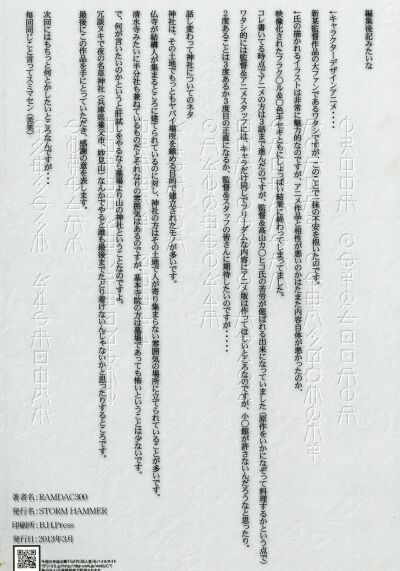 編集後記みたいな
←キャラクターデザインアニメ・・・・
新某監督作品の大ファンであるワタシですが、このことで一抹の不安を抱いたのです。
←氏の描かれるイラストは非常に魅力的なのですが、アニメ作品と相性が悪いのかはたまた内容自体が悪かったのか、
映像化されたブラク〇ル&〇色キセキともにしょっぱい結果に終わってしまってました。
コレ書いてる時点でアニメの方は3話まで進んだのですが、監督&高山カ〇ヒコ氏の苦労が偲ばれる出来になっていました（原作をいかになぞって料理するかという点で）
ワタシ的には監督&アニメスタッフには、キャラだけ同じでフリーダムな内容にアニメ版は作ってほしいところなのですが、小〇館が許さないんだろうなと思ったり。
2度あることは3度あるか3度目の正直になるか、監督&スタッフの皆さんに期待したいのですが・・・・・
話し変わって神社についてのネタ
神社は、その土地でもっともヤバイ場所を鎮める目的で建立されたモノが多いです。
仏寺が結構人が集まるところに建てられているのに対し、神社の方はその土地で人が寄り集まらない雰囲気の場所に立てられていることが多いです。
清水寺みたいに半分社も兼ねているものだとそれなりの雰囲気はあるのですが、基本寺院の方は墓場であっても怖いということは少ないです。
で、何が言いたいのかというと肝試しをやるなら墓場より山の神社ということなのですよ。
冗談ヌキで夜の名草神社（兵庫県養父市、妙見山）なんかでやると誰も最後までたどり着けないんじゃないかと思ったりするところです。
最後にこの作品を手にとっていただき、感謝の意を表します。
次回にはもちっと何とかしたいところなんですが・・・
毎回同じこと言ってスミマセン（苦笑）
著者名:RAMDAC300
発行名:STORM HAMMER
印刷所:B.H.Press
発行日:2013年3月